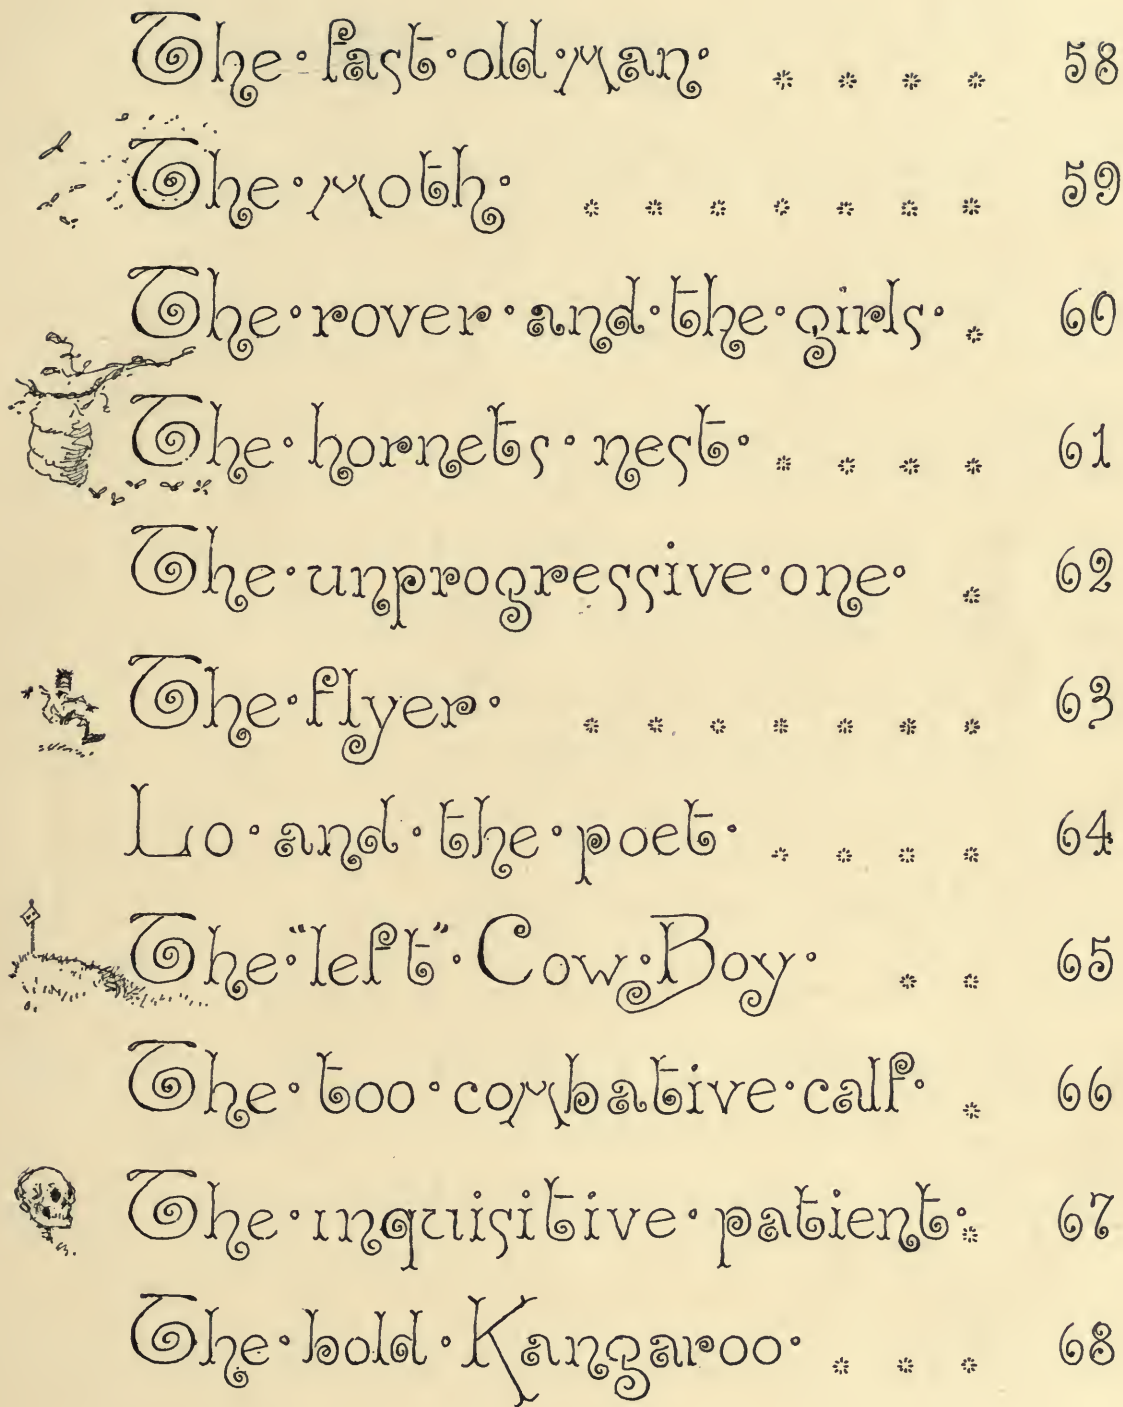 The fast old man 58
The moth 59
The rover and the girls 60
The hornets nest 61
The unprogressive one 62
The flyer 63
Lo and the poet 64
The "left" Cow Boy 65
The too combative calf 66
The inquisitive patient 67
The bold Kangaroo 68